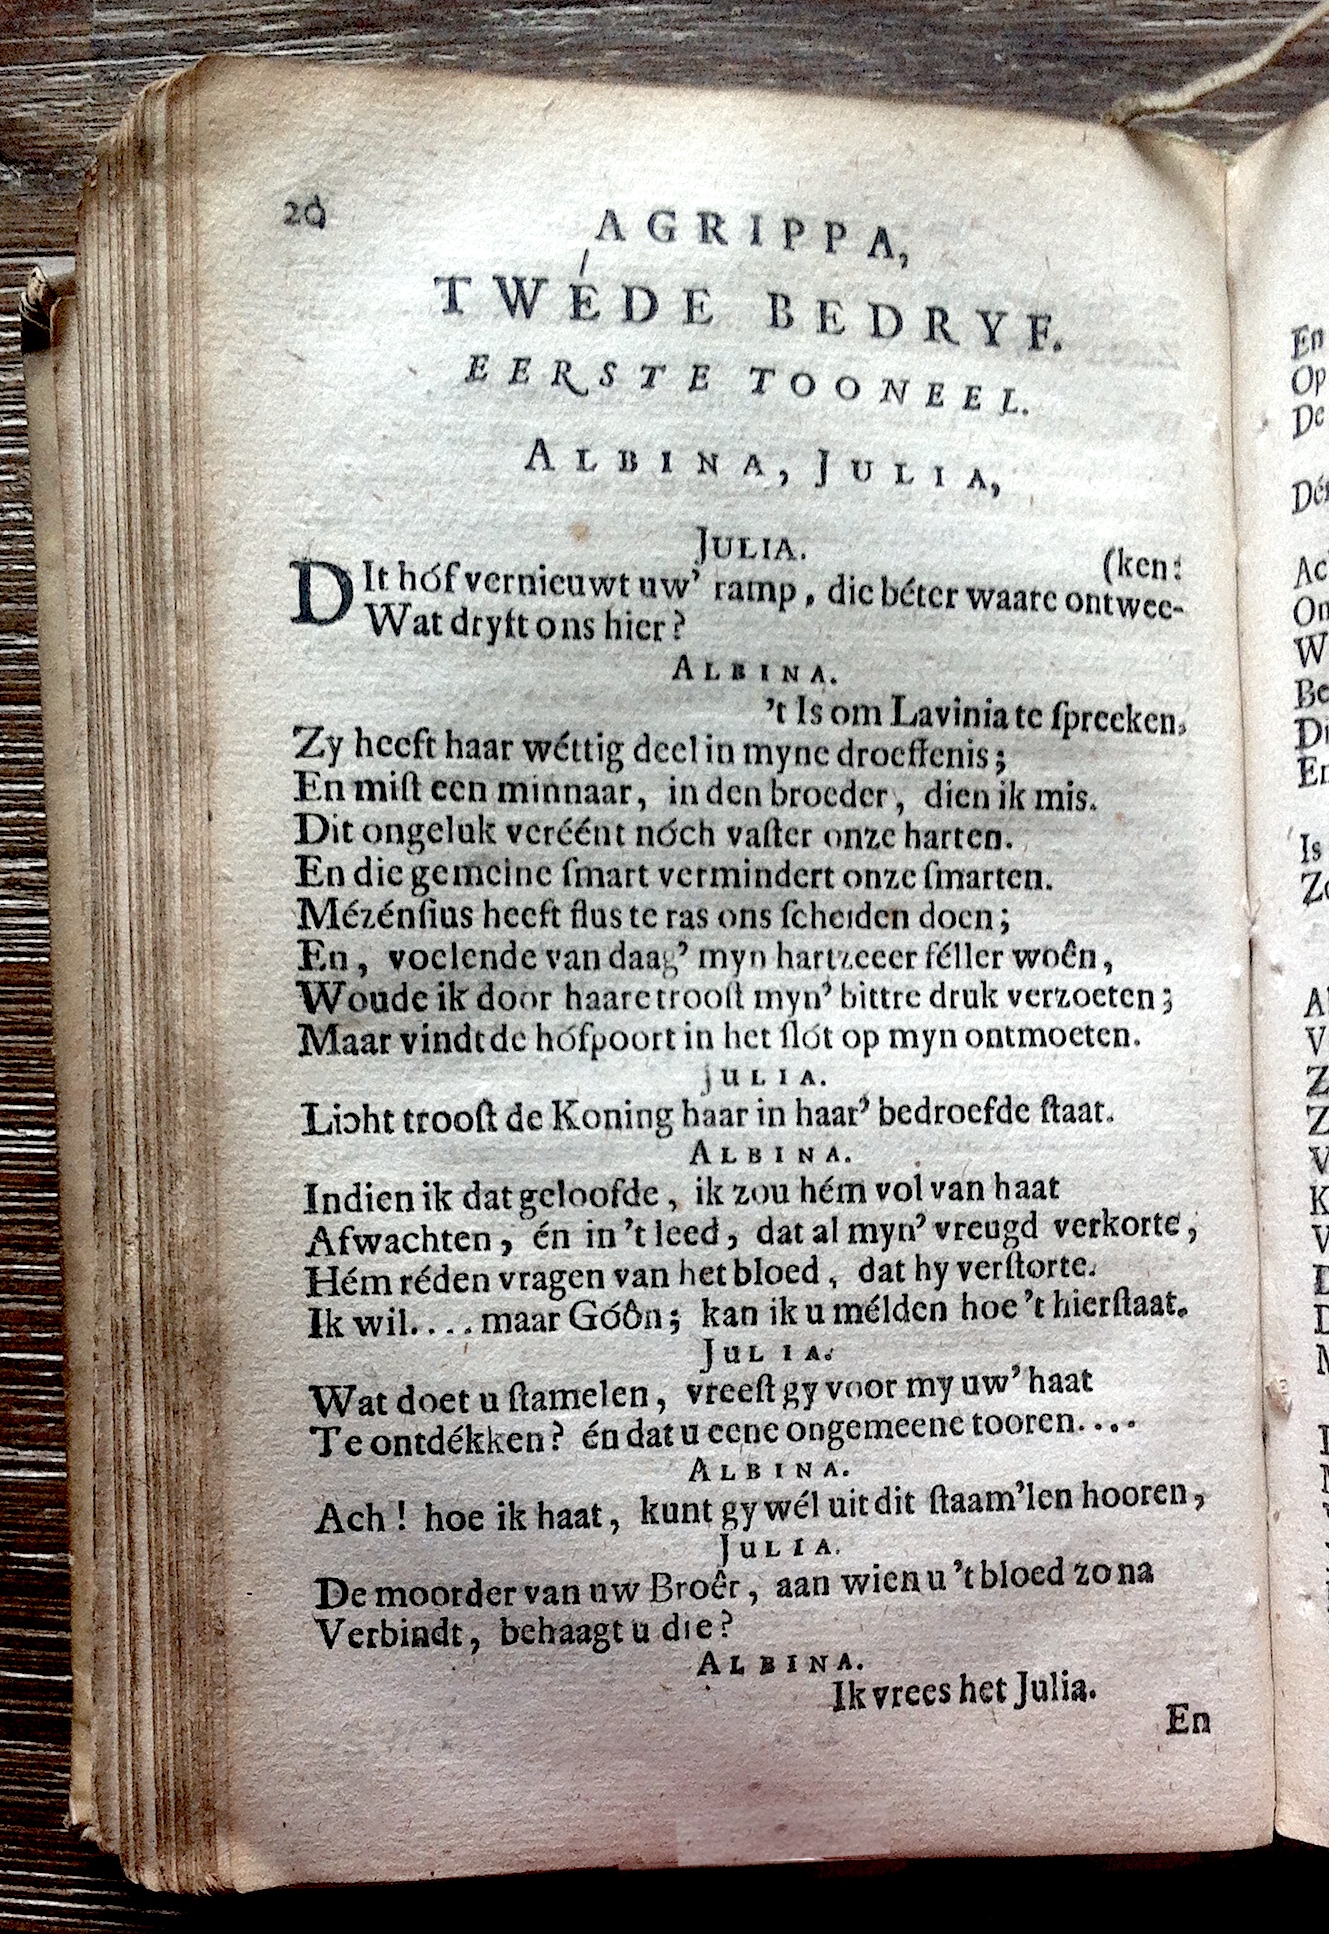 20
AGRIPPA,
TWÉDE BEDRYF.
EERSTE TOONEEL.
ALBINA, JULIA,
JULIA.
(ken:
DIt hóf vernieuwt uw’ ramp, die béter waare ontwee-
Wat dryft ons hier?
ALBINA.
’t Is om Lavinia te ſpreeken,
Zy heeft haar wéttig deel in myne droeffenis;
En miſt een minnaar, in den broeder, dien ik mis.
Dit ongeluk veréént nóch vaſter onze harten.
En die gemeine ſmart vermindert onze ſmarten.
Mézénſius heeft ſlus te ras ons ſcheiden doen;
En, voelende van daag’ myn hartzeeer féller woên,
Woude ik door haare trooſt myn’ bittre druk verzoeten;
Maar vindt de hófpoort in het ſlót op myn ontmoeten.
JULIA.
Licht trooſt de Koning haar in haar’ bedroefde ſtaat.
ALBINA.
Indien ik dat geloofde, ik zou hém vol van haat
Afwachten, én in ’t leed, dat al myn’ vreugd verkorte,
Hém réden vragen van het bloed, dat hy verſtorte.
Ik wil.... maar Góôn; kan ik u mélden hoe ’t hier ſtaat.
JULIA.
Wat doet u ſtamelen, vreeſt gy voor my uw’ haat
Te ontdékken? én dat u eene ongemeene tooren....
ALBINA.
Ach! hoe ik haat, kunt gy wél uit dit ſtaam’len hooren,
JULIA.
De moorder van uw Broêr, aan wien u ’t bloed zo na
Verbindt, behaagt u die?
ALBINA.
Ik vrees het Julia.
En
En
Op
De
Ac
On
W
Be
Di
En
Is